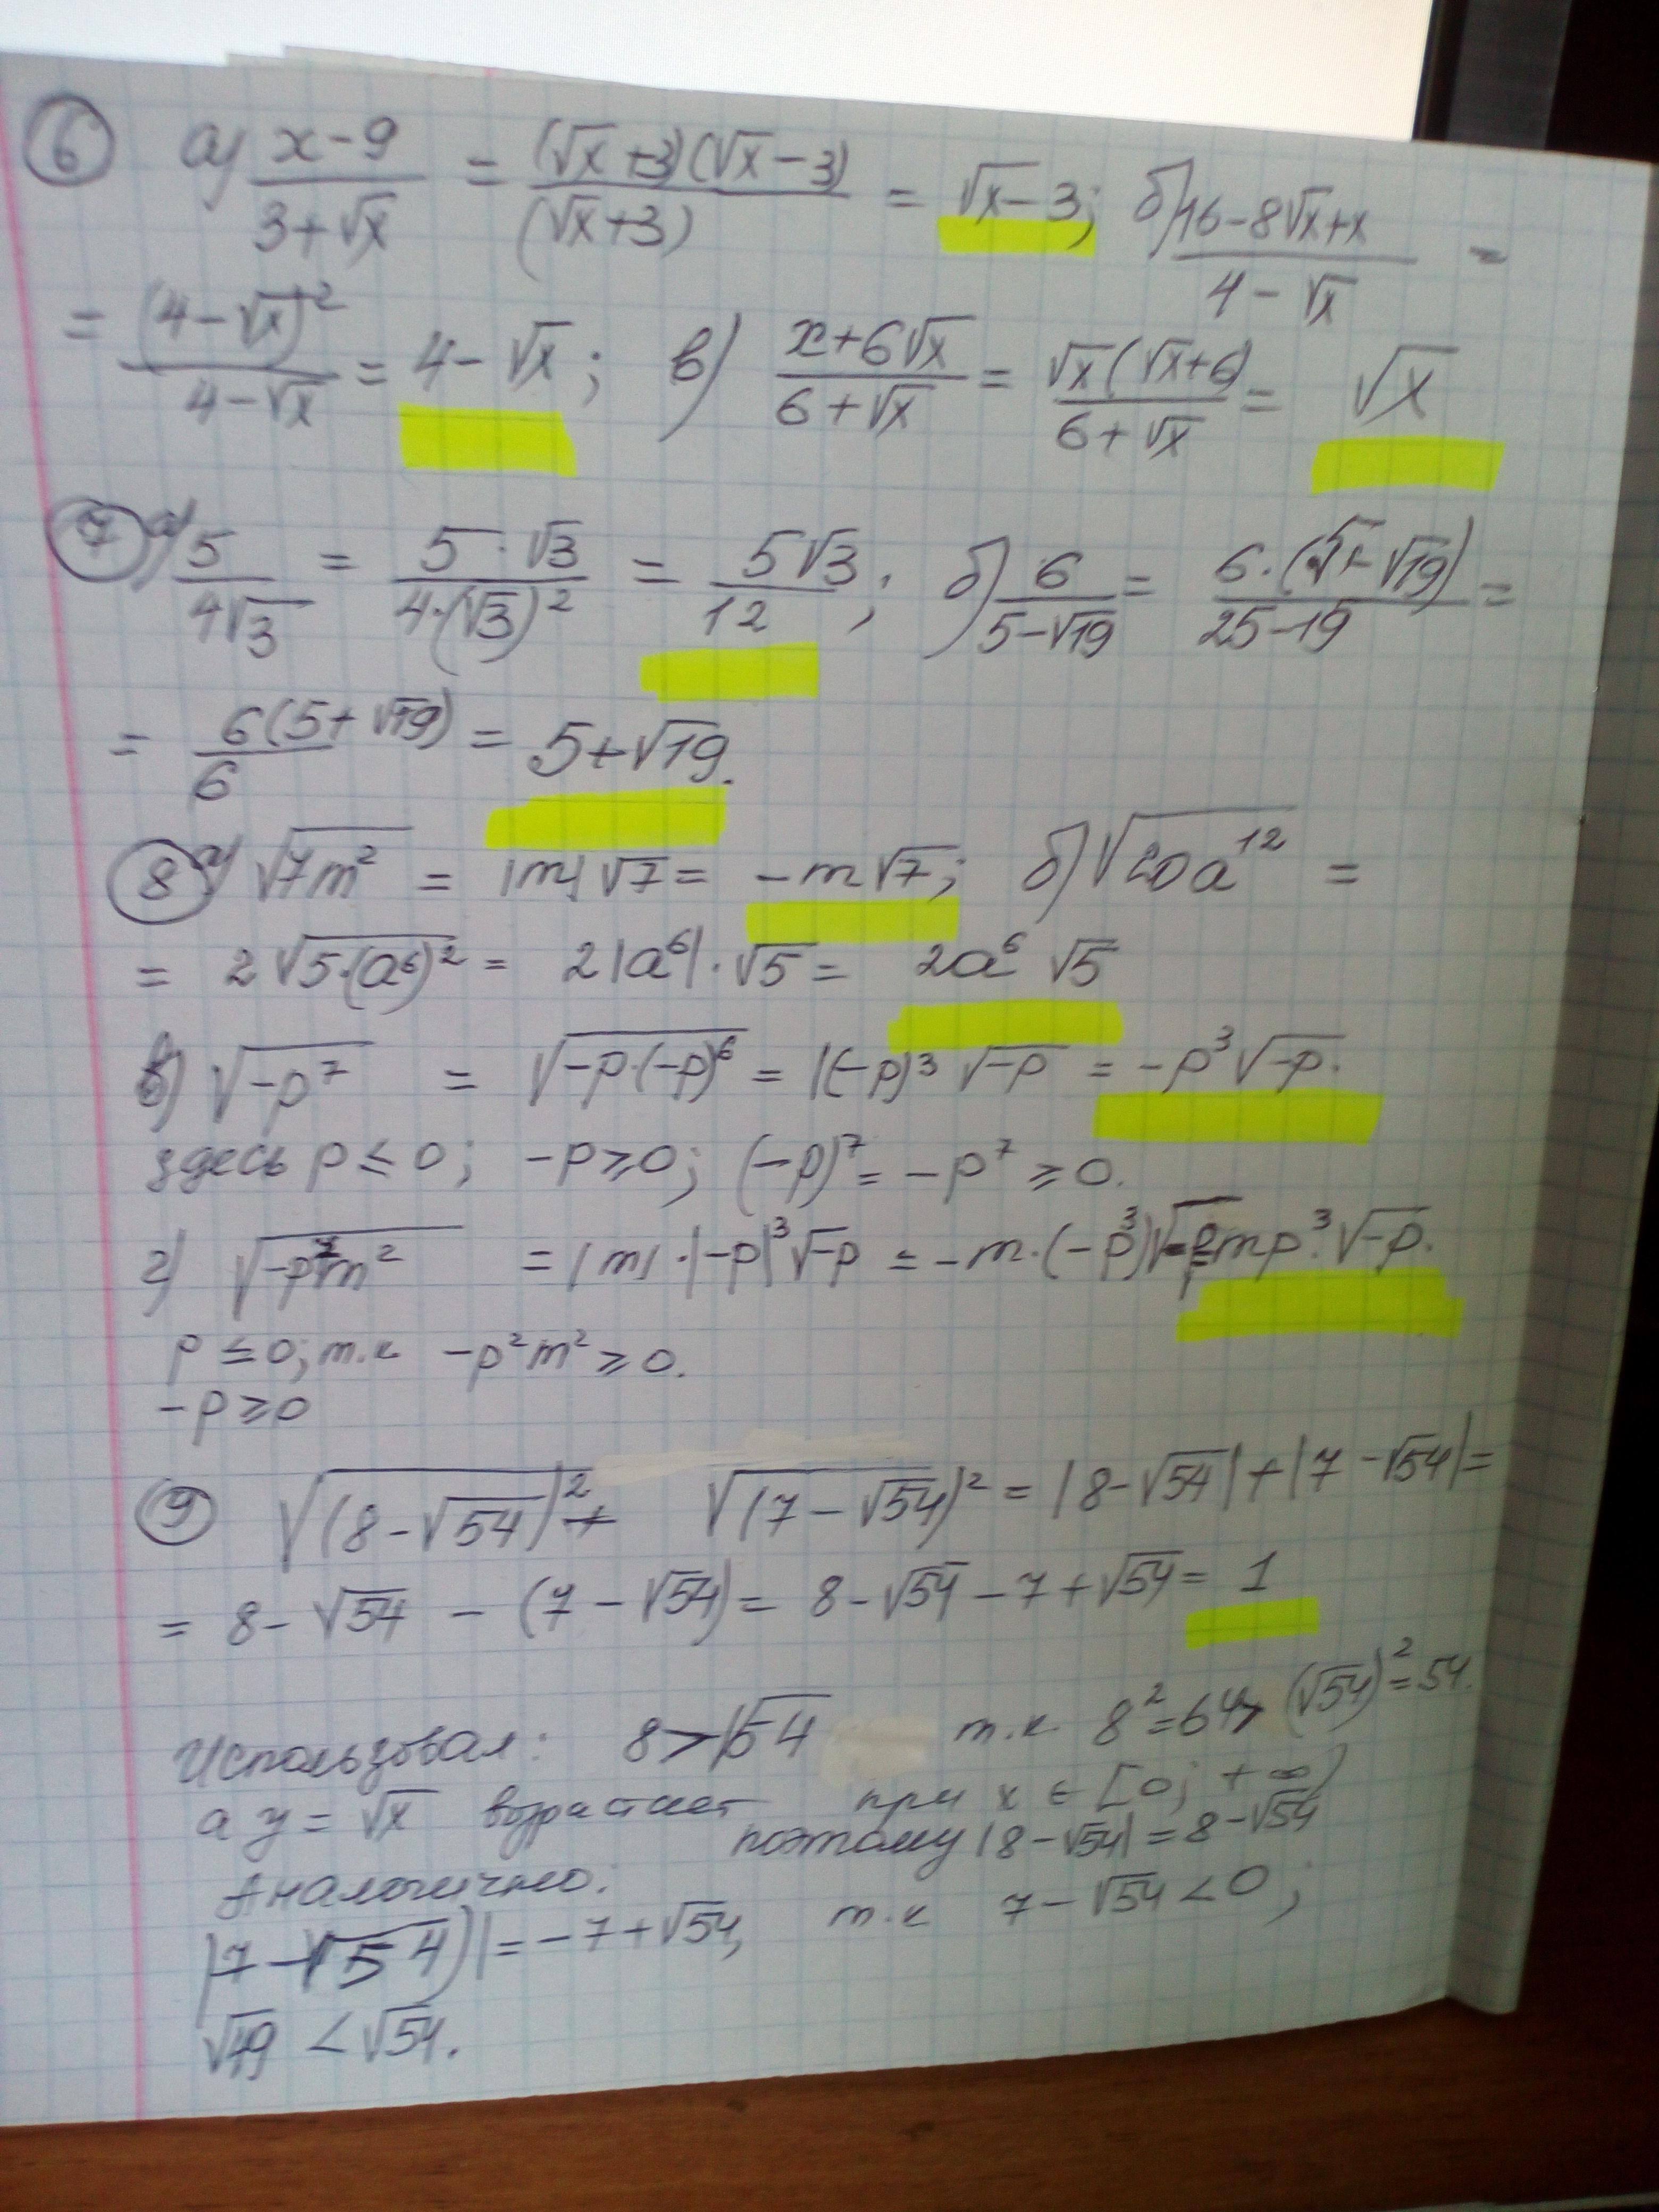 6 а) (x-9)/(3+√x) = ((√x+3)(√x-3))/((√x+3)) = √x-3; б) (16-8√x+x)/(4-√x) =
= (4-√x)²/(4-√x) = 4-√x; в) (x+6√x)/(6+√x) = (√x(√x+6))/(6+√x) = √x
7 а) 5/(4√3) = (5·√3)/(4·(√3)²) = 5√3/12; б) 6/(5-√19) = (6·(5+√19))/(25-19) =
= 6(5+√19)/6 = 5+√19.
8 а) √(7m²) = |m|√7 = -m√7; б) √(20a¹²) =
= 2√(5·(a⁶)²) = 2|a⁶|·√5 = 2a⁶√5
в) √(-p⁷) = √(-p·(-p)⁶) = |(-p)³ √-p = -p³√-p.
здесь p ≤ 0; -p ≥ 0; (-p)⁷ = -p⁷ ≥ 0.
г) √(-p⁷m²) = |m|·|-p|³√-p = -m·(-p³)√-p = mp³·√-p.
p ≤ 0; т.к -p²m² ≥ 0.
-p ≥ 0
9 √(8-√54)² + √(7-√54)² = |8-√54|+|7-√54| =
= 8-√54 - (7-√54) = 8-√54-7+√54 = 1
Использовал: 8>√54 т.к 8²=64> (√54)²=54.
а y = √x возрастает при x ∈ [0; +∞)
поэтому |8-√54| = 8-√54
Аналогично:
|7-√54)| = -7+√54, т.к 7-√54 < 0;
√49 < √54.